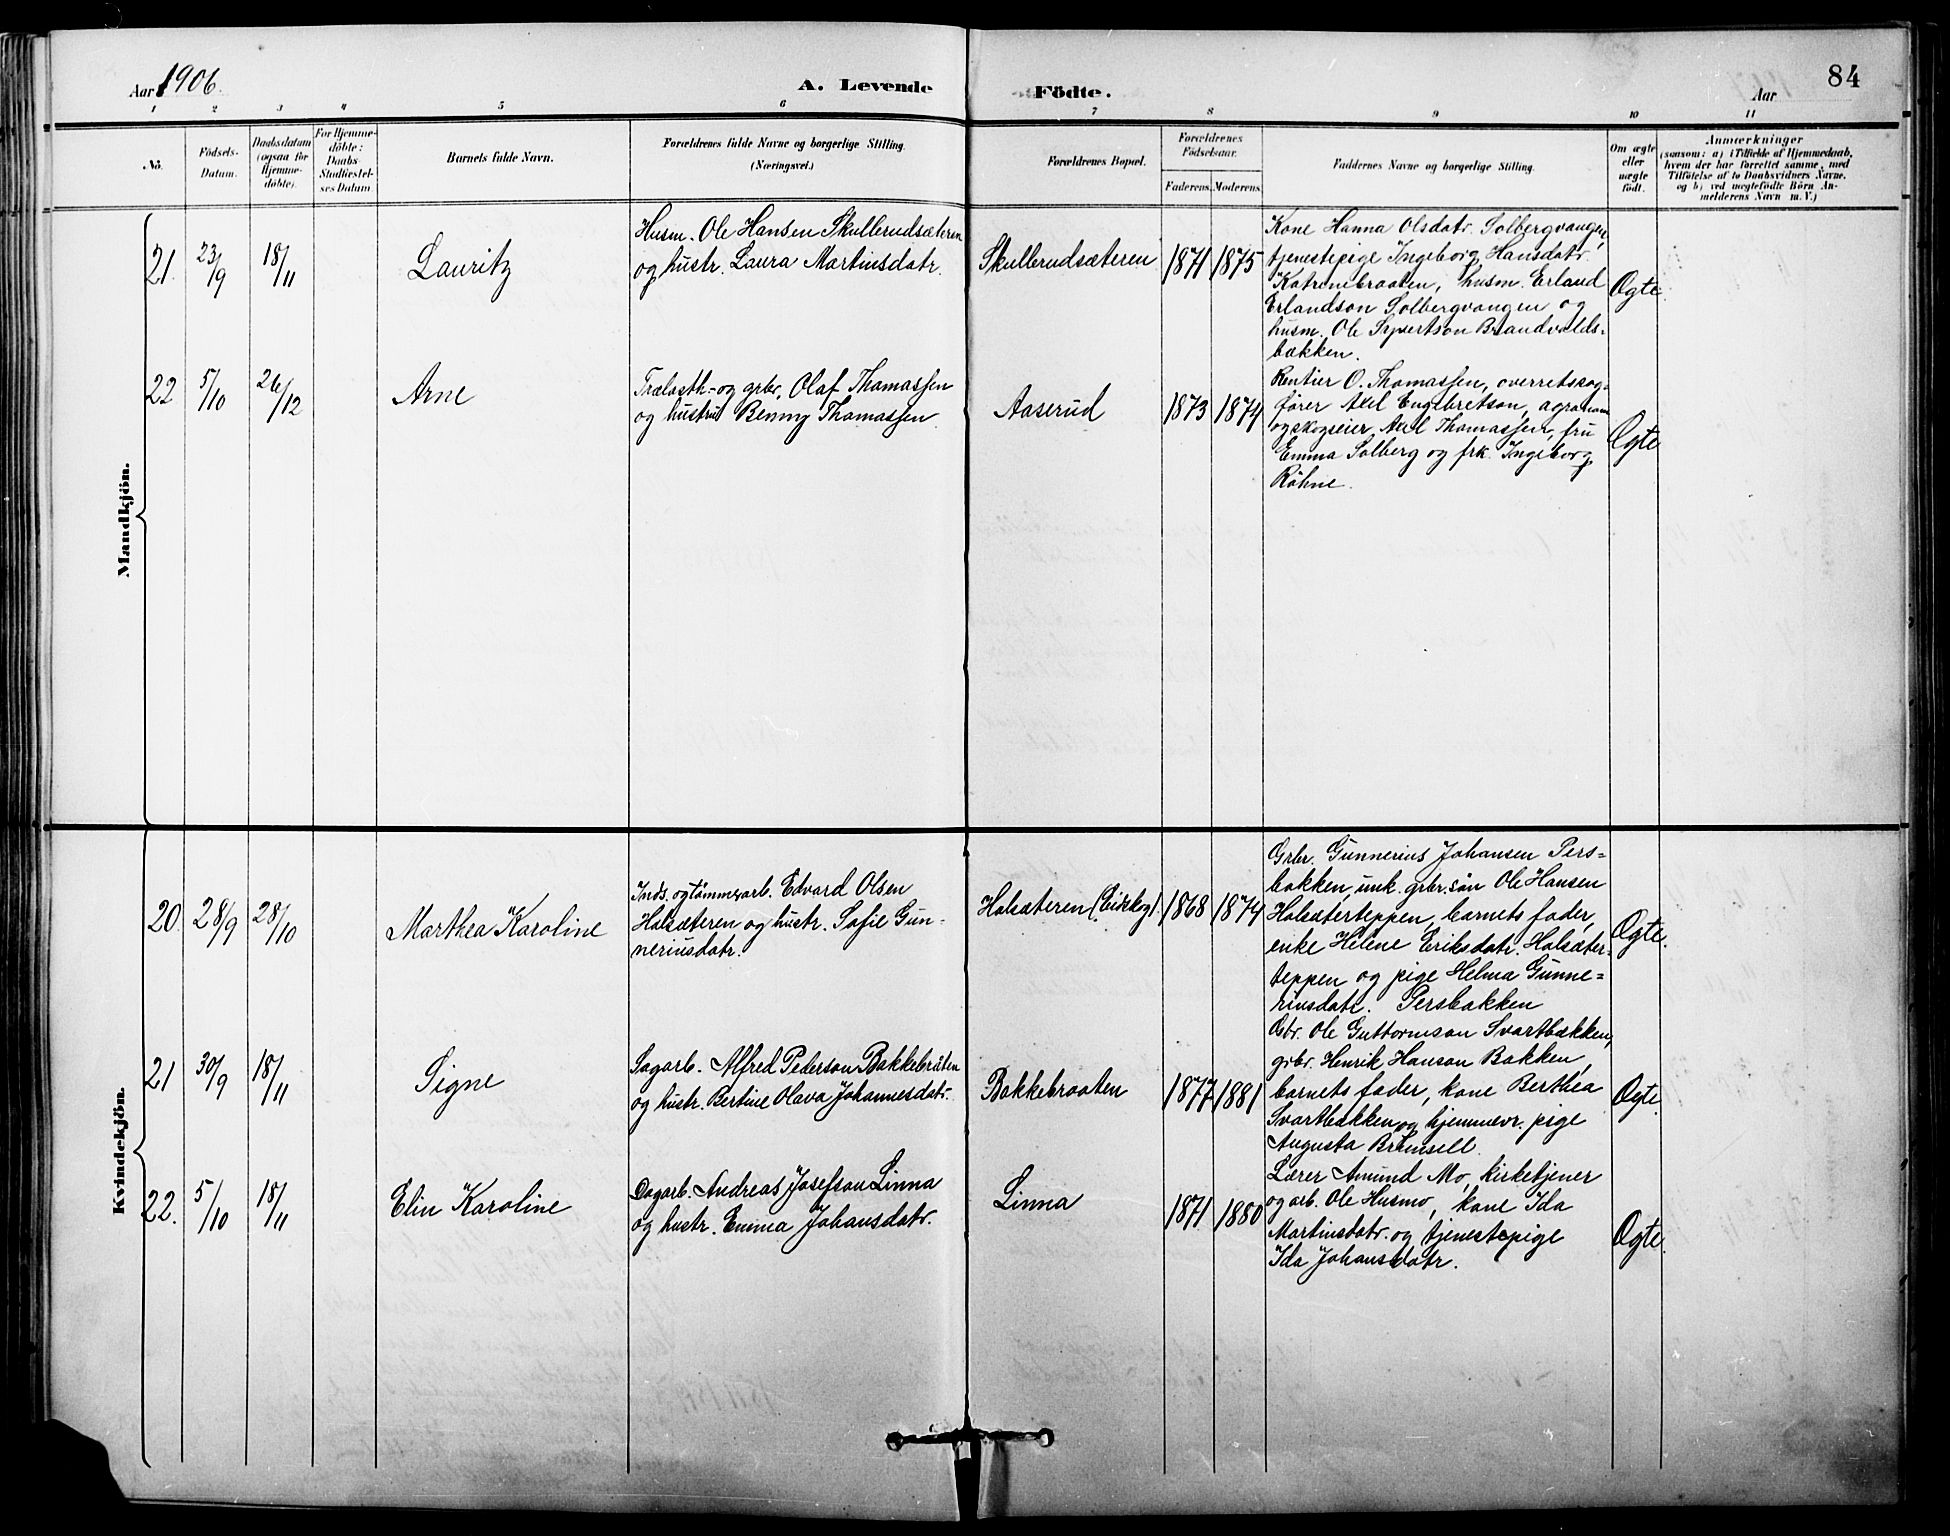 Aar 1906
A. Levende
Födte.
Aar
84
1 2 3 4 5 6 7 8 9 10 11
No.
Födsels-
Datum.
Daabsdatum
(ogsaa for
Hjemme-
döbte).
For Hjemme-
döbte:
Daabs-
Stadfæstel-
ses Datum
Barnets fulde Navn.
Forældrenes fulde Navne og borgerlige Stilling.
(Næringsvei.)
Forældrenes Bopæl.
Forældrenes
Födselsaar.
Faderens. Moderens.
Faddernes Navne og borgerlige Stilling.
Om ægte
eller
uægte
födt.
Anmærkninger
(saasom: a) i Tilfælde af Hjemmedaab,
hvem der har forrettet samme, med
Tilföielse af to Daabsvidners Navne,
og b) ved uægtefödte Börn An-
melderens Navn m.V.)
Mandkjön.
21. 23/9 18/11 Lauritz
Husm. Ole Hansen Skullerudsæteren
og hustr. Laura Martinsdatr.
Skullerudsæteren 1871 1875
Kone Hanna Olsdatr. Solbergvangen,
tjenestepige Ingeborg Hansdatr.
Katrinebraaten, husm. Erland
Erlandson Solbergvangen og
husm. Ole Syvertson Brandvolds-
bækken.
Ægte.
22 5/10 26/12 Arne
Trælasth.- og grbr. Olaf Thomassen
og hustru Benny Thomassen.
Aaserud 1873 1874
Rentier O. Thomassen, overretssag-
fører Axel Engebretson, agronom
og skogseier Axel Thomassen, fru
Emma Solberg og frk. Ingeborg
Röhne.
Ægte
Kvindekjön.
20. 28/9 28/10 Marthea Karoline
Inds. og tömmerarb. Edvard Olsen
Holsæteren og hustr. Sofie Gun-
neriusdatr.
Holsæteren (Eidskog). 1868 1874
Grbr. Gunnerius Johansen Pers-
bakken, unk. grbr.sön Ole Hansen
Holsæterteppen, barnets fader,
enke Helene Eriksdatr. Holsæter-
teppen og pige Helma Gunne-
riusdatr. Persbakken
Ægte.
21 30/9 18/11 Signe
Sagarb. Alfred Pederson Bakkebråten
og hustr. Bertine Olava Johannesdatr.
Bakkebraaten 1877 1881
Gbr. Ole Guttormson Svartbækken,
grbr. Henrik Hanson Bakken,
barnets fader, kone Berthea
Svartbækken og hjemmevr. pige
Augusta
Ægte.
22. 5/10 18/11 Elin Karoline
Dagarb. Andreas Josefson Linna
og hustr. Emma Johansdatr.
Linna 1871 1880
Lærer Amund Mo, kirketjener
og arb. Ole Husmo, kone Ida
Martinsdatr. og tjenestepige
Ida Johansdatr.
Ægte.